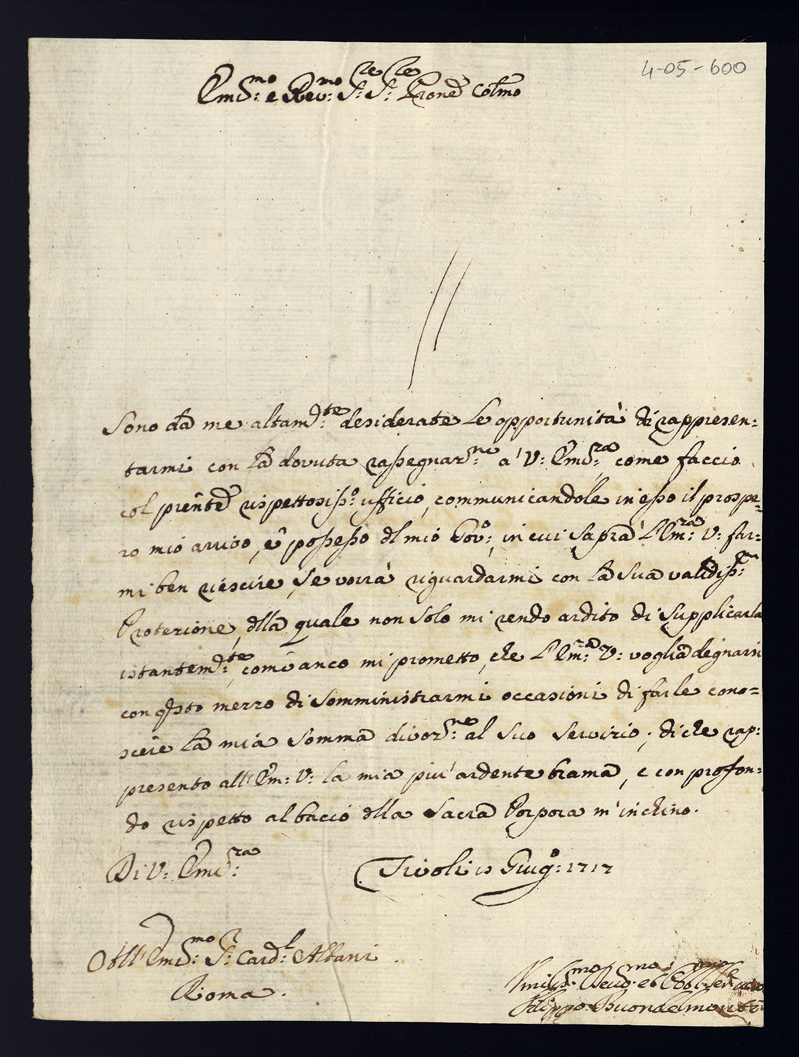 4-05-600
Em:mo e Rev:mo S:re S:re Prone Colmo
Sono da me altam:te desiderate le opportunità di rappresen=
tarmi con la dovuta rassegnaz:ne a' V: Em:za come faccio
col pnte rispettosiss:o ufficio, communicandole in esso il prospe=
ro mio arrivo, e possesso del mio Gov:o, in cui saprà l'Em:za V: far=
mi ben riescire, se vorrà riguardarmi con la sua validiss:ma
Protezione, dlla quale non solo mi rendo ardito di supplicarla
istantem:te, com'anco mi prometto, che l'Em:za V: voglia degnarsi
con qsto mezzo di somministrarmi occasioni di farle cono=
scere la mia somma divoz:ne al suo servizio; di che rap:
presento all'Em: V: la mia più ardente brama, e con profon=
do rispetto al bacio dlla Sacra Porpora m'inchino.
Di V: Em:za
Tivoli Giug:o 1717
Em:mo S:r Card:l Albani
Roma.
Umiliss:mo Dev:mo et Obl:mo
Filippo Buondelmonti